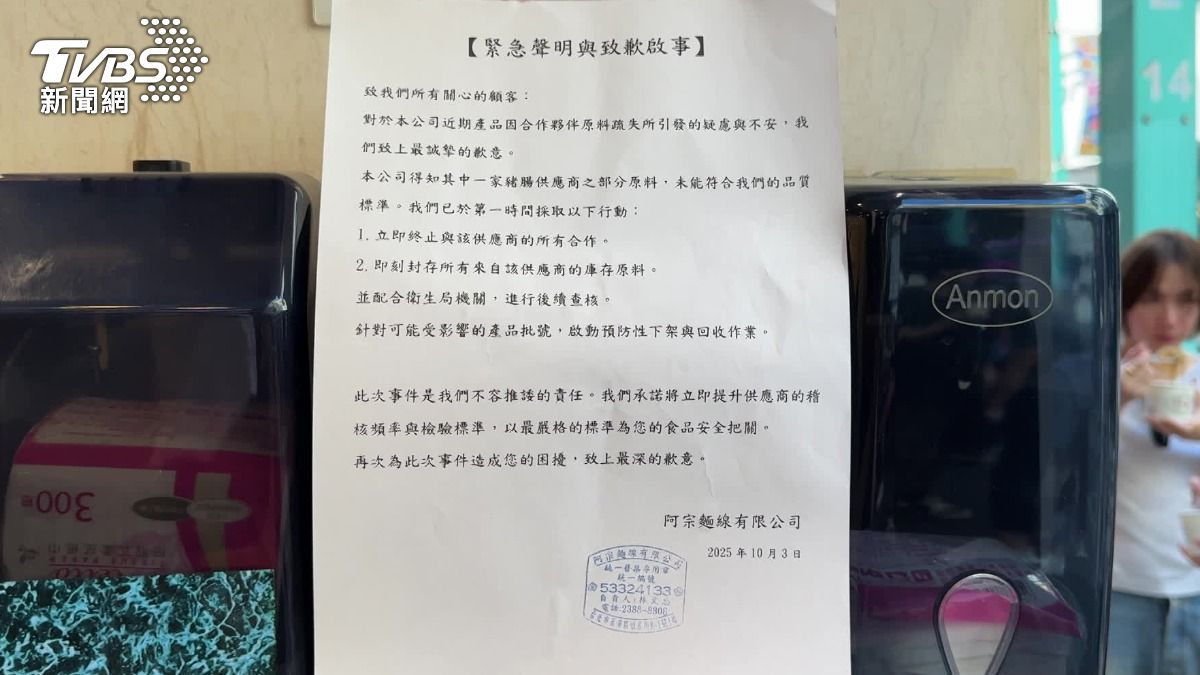 TVBS
新聞網
【緊急聲明與致歉啟事】
致我們所有關心的顧客：
對於本公司近期產品因合作夥伴原料疏失所引發的疑慮與不安，我
們致上最誠摯的歉意。
本公司得知其中一家豬腸供應商之部分原料，未能符合我們的品質
標準。我們已於第一時間採取以下行動：
1. 立即終止與該供應商的所有合作。
2. 即刻封存所有來自該供應商的庫存原料。
並配合衛生局機關，進行後續查核。
針對可能受影響的產品批號，啟動預防性下架與回收作業。
此次事件是我們不容推諉的責任。我們承諾將立即提升供應商的稽
核頻率與檢驗標準，以最嚴格的標準為您的食品安全把關。
再次為此次事件造成您的困擾，致上最深的歉意。
阿宗麵線有限公司
2025 年 10 月 3 日
阿宗麵線有限公司
統一發票專用章
統一編號
53324133
電話:2388-8808
Anmon
14
300